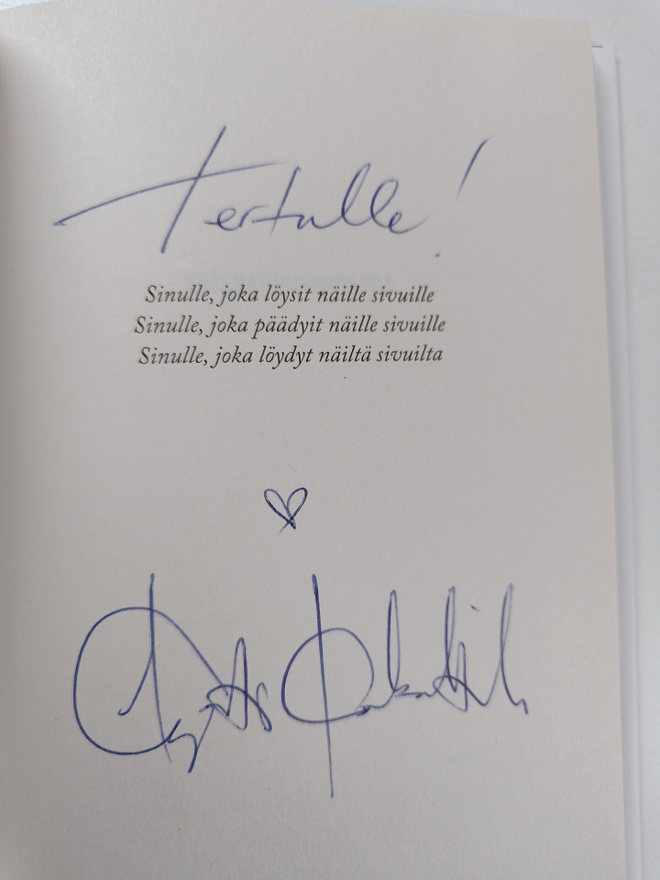 Tertulle!
Sinulle, joka löysit näille sivuille
Sinulle, joka päädyit näille sivuille
Sinulle, joka löydyt näiltä sivuilta